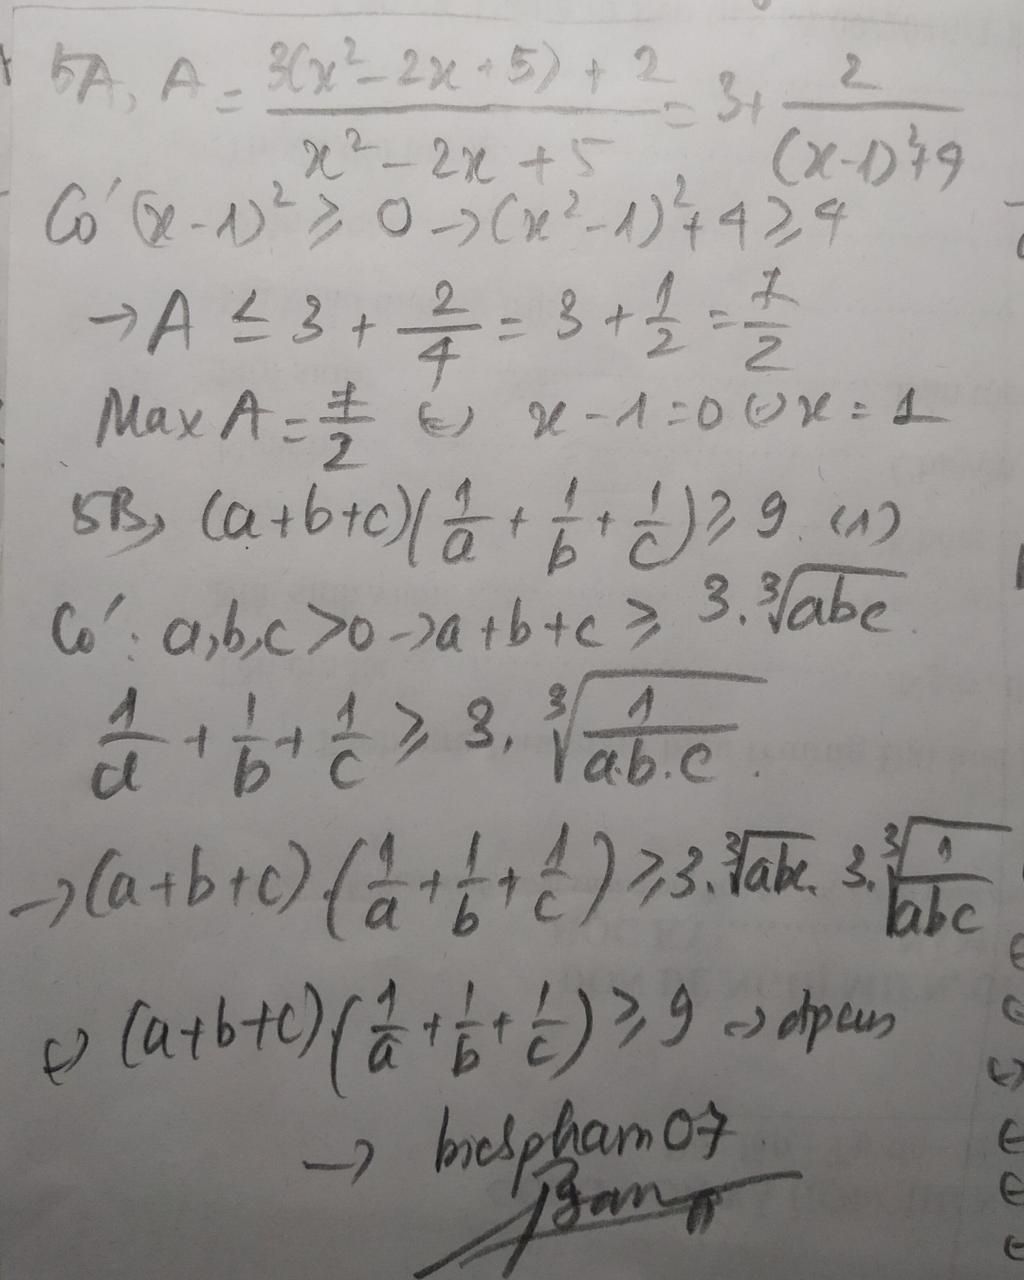 5A, A = \frac{3(x^2 - 2x + 5) + 2}{x^2 - 2x + 5} = 3 + \frac{2}{(x-1)^2 + 9}
Có (x-1)^2 ≥ 0 → (x^2-1)^2 + 4 ≥ 4
→ A ≤ 3 + \frac{2}{4} = 3 + \frac{1}{2} = \frac{7}{2}
Max A = \frac{7}{2} ⇔ x - 1 = 0 ⇔ x = 1
5B, (a+b+c)(\frac{1}{a} + \frac{1}{b} + \frac{1}{c}) ≥ 9. (1)
Có: a,b,c > 0 → a + b + c ≥ 3.\sqrt[3]{abc}.
\frac{1}{a} + \frac{1}{b} + \frac{1}{c} ≥ 3.\sqrt[3]{\frac{1}{a.b.c}}.
→ (a+b+c).(\frac{1}{a} + \frac{1}{b} + \frac{1}{c}) ≥ 3.\sqrt[3]{abc}. 3.\sqrt[3]{\frac{1}{abc}}
⇔ (a+b+c)(\frac{1}{a} + \frac{1}{b} + \frac{1}{c}) ≥ 9 → đpcm
→ bicspham07